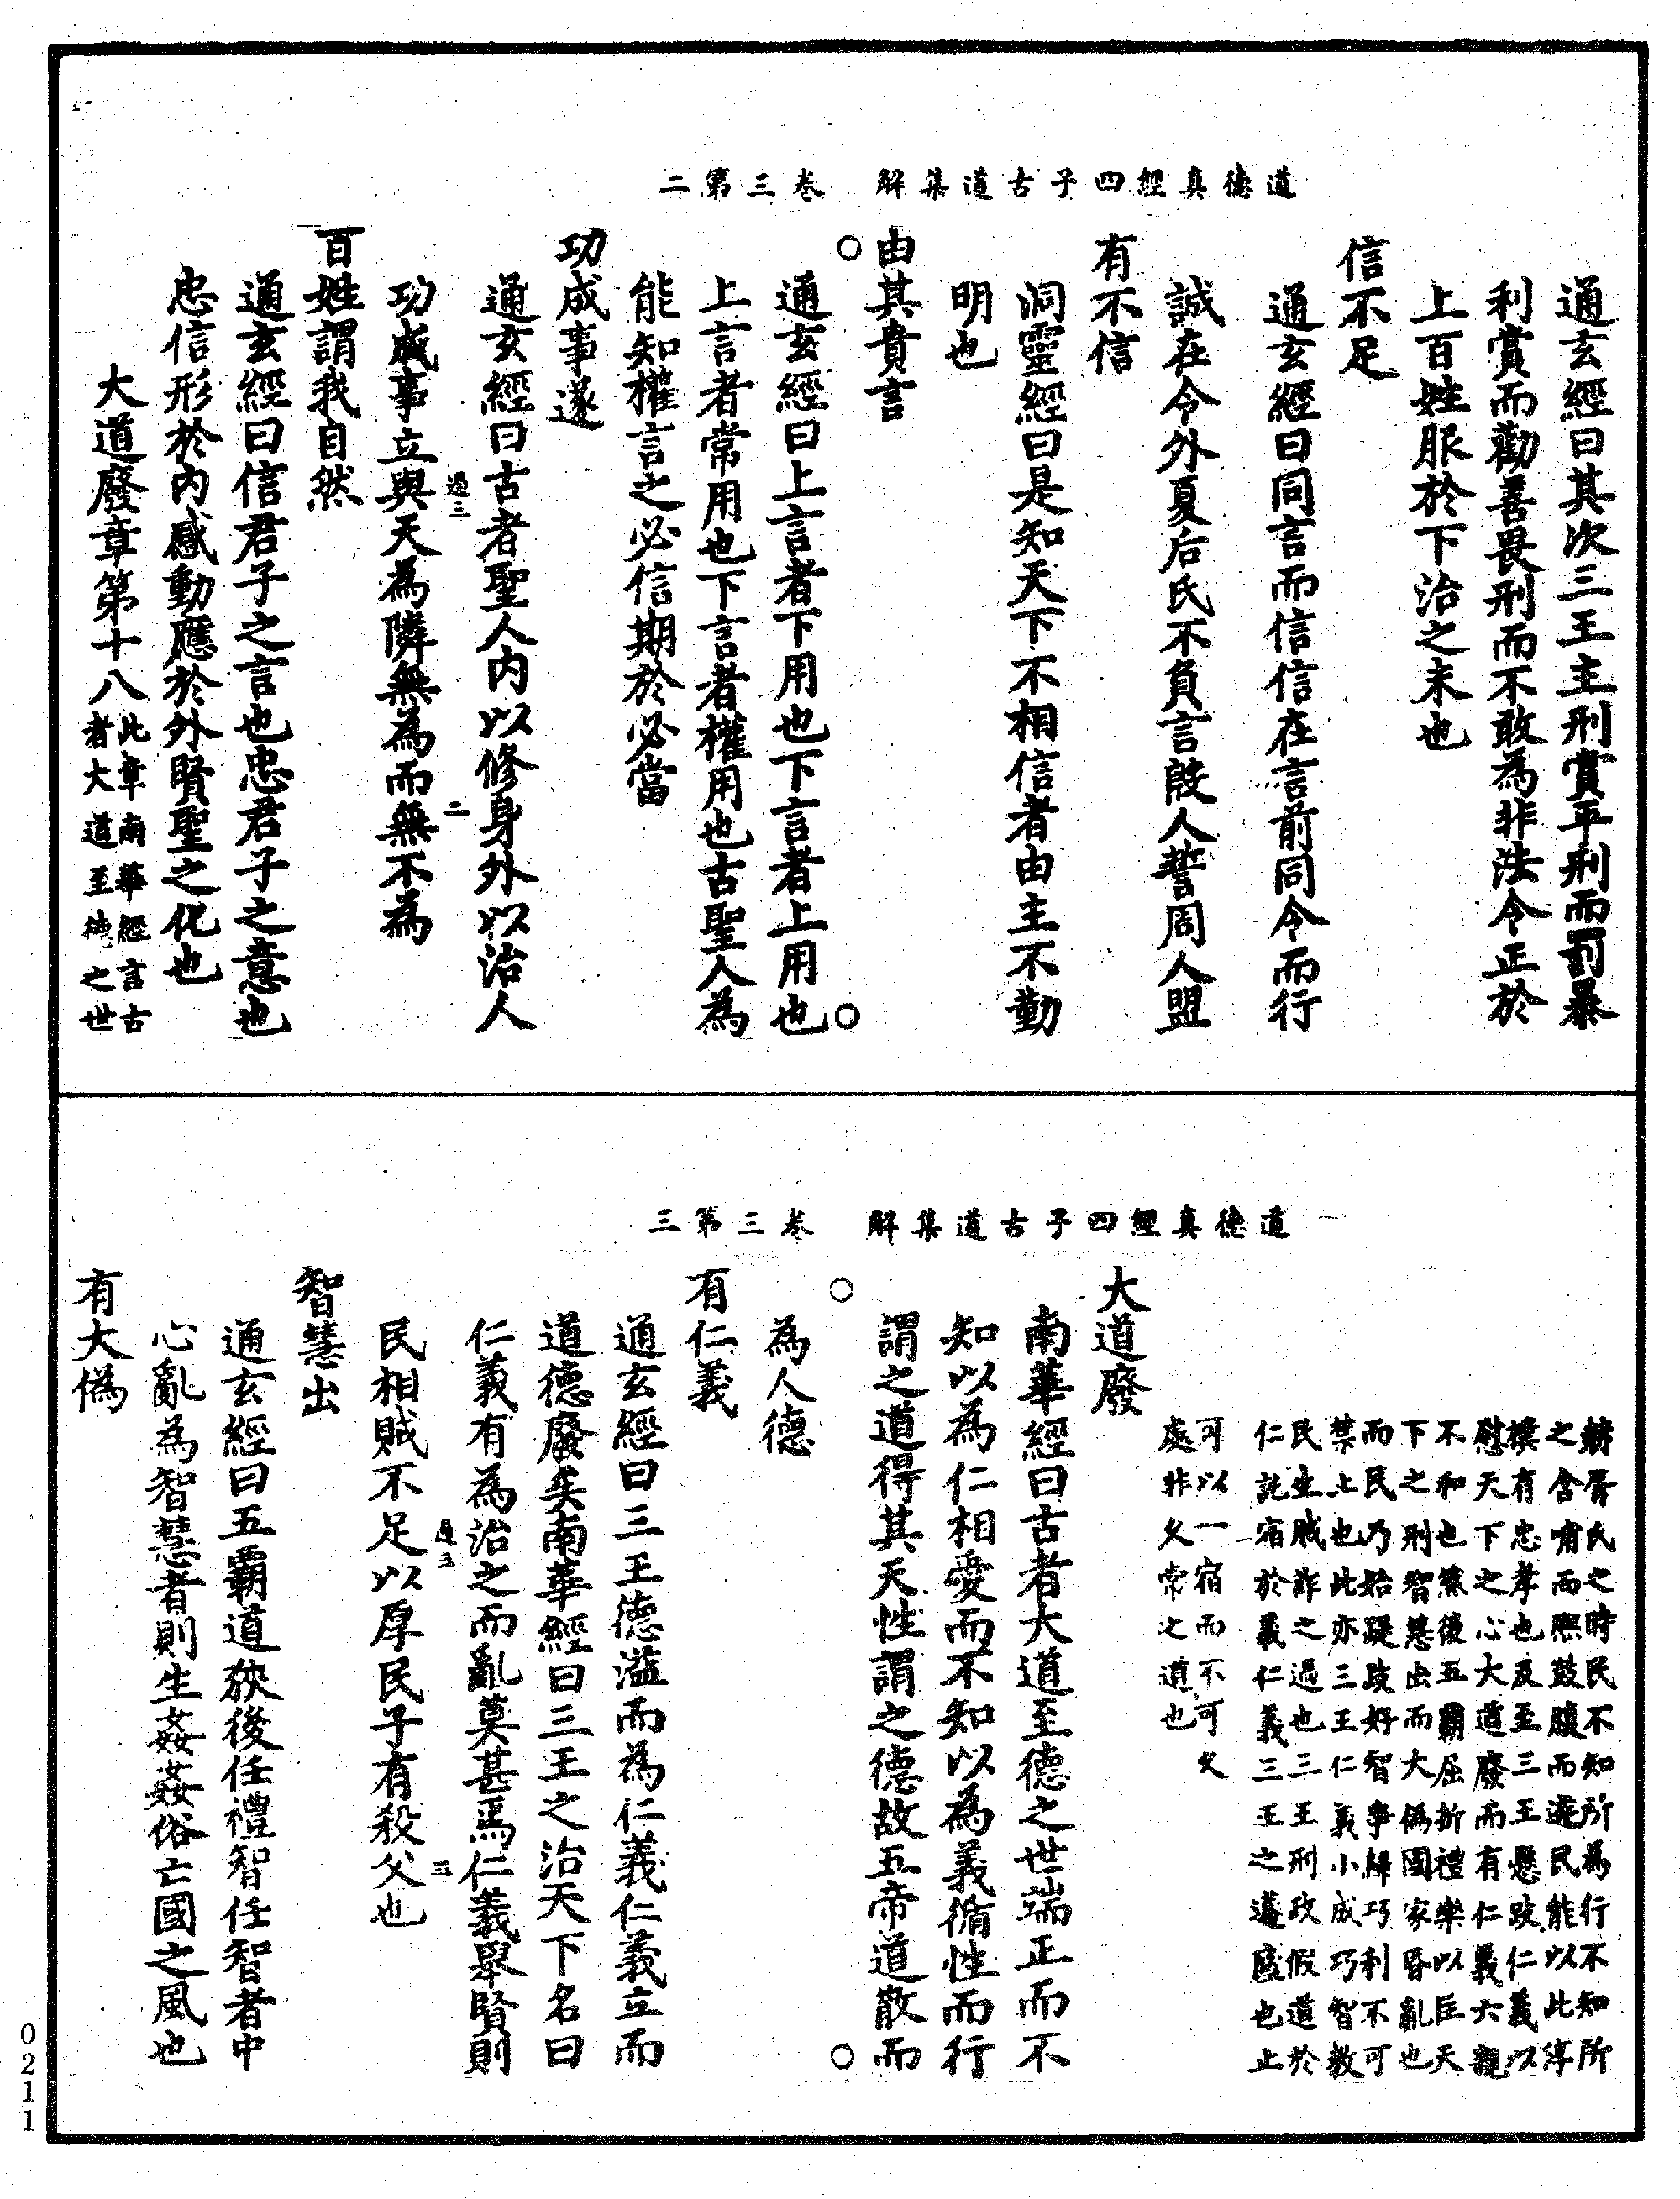 道德真經四子古道集解　卷三第二
通玄經曰其次三王主刑賞平刑而罰暴
利賞而勸善畏刑而不敢為非法令正於
上百姓服於下治之末也
信不足
通玄經曰同言而信信在言前同令而行
誠在令外夏后氏不負言殷人誓周人盟
有不信
洞靈經曰是知天下不相信者由主不勤
明也
由其貴言
○
通玄經曰上言者下用也下言者上用也
○
上言者常用也下言者權用也古聖人為
能知權言之必信期於必當
功成事遂
通玄經曰古者聖人内以修身外以治人
過三
二
功成事立與天為隣無為而無不為
百姓謂我自然
通玄經曰信君子之言也忠君子之意也
忠信形於内感動應於外賢聖之化也
大道廢章第十八此章南華經言古
者大道至德之世
道德真經四子古道集解　卷三第三
赫胥氏之時民不知所為行不知所
之含哺而熙鼓腹而遊民能以此淳
樸有忠孝也及至三王懸跂仁義以
慰天下之心大道廢而有仁義六親
不和也衆後五霸屈折禮樂以匡天
下之刑智慧出而大偽國家昏亂也
而民乃始踶跂好智爭歸巧利不可
禁上也此亦三王仁義小成巧智教
民生賊詐之過也三王刑政假道於
仁託宿於義仁義三王之蘧廬也止
可以一宿而不可久
處非久常之道也
大道廢
南華經曰古者大道至德之世端正而不
知以為仁相愛而不知以為義循性而行
謂之道得其天性謂之德故五帝道散而
○
○
為人德
有仁義
通玄經曰三王德溢而為仁義仁義立而
道德廢矣南華經曰三王之治天下名曰
仁義有為治之而亂莫甚焉仁義舉賢則
過三
三
民相賊不足以厚民子有殺父也
智慧出
通玄經曰五霸道狹後任禮智任智者中
心亂為智慧者則生姦姦俗亡國之風也
有大偽
0211